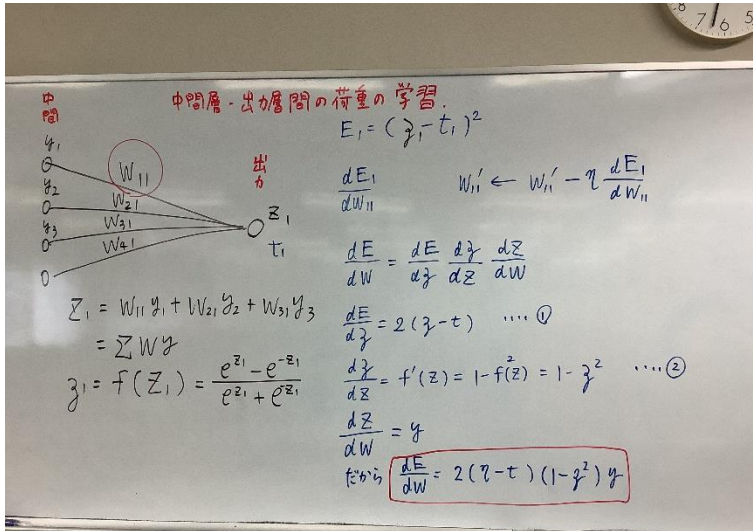 中間層・出力層間の荷重の学習.
中間
y₁
y₂
y₃
W₁₁
W₂₁
W₃₁
W₄₁
出力
Z₁
t₁
Z₁ = W₁₁y₁ + W₂₁y₂ + W₃₁y₃
= ΣWy
z₁ = f(Z₁) = (e^{Z₁} - e^{-Z₁}) / (e^{Z₁} + e^{-Z₁})
E₁ = (z₁ - t₁)²
dE₁/dW₁₁
W₁₁' ← W₁₁' - η dE₁/dW₁₁
dE/dW = dE/dz dz/dZ dZ/dW
dE/dz = 2(z-t) ‥‥①
dz/dZ = f'(Z) = 1-f²(Z) = 1-z² ‥‥②
dZ/dW = y
だから dE/dW = 2(η-t)(1-z²)y
8 7 6 5